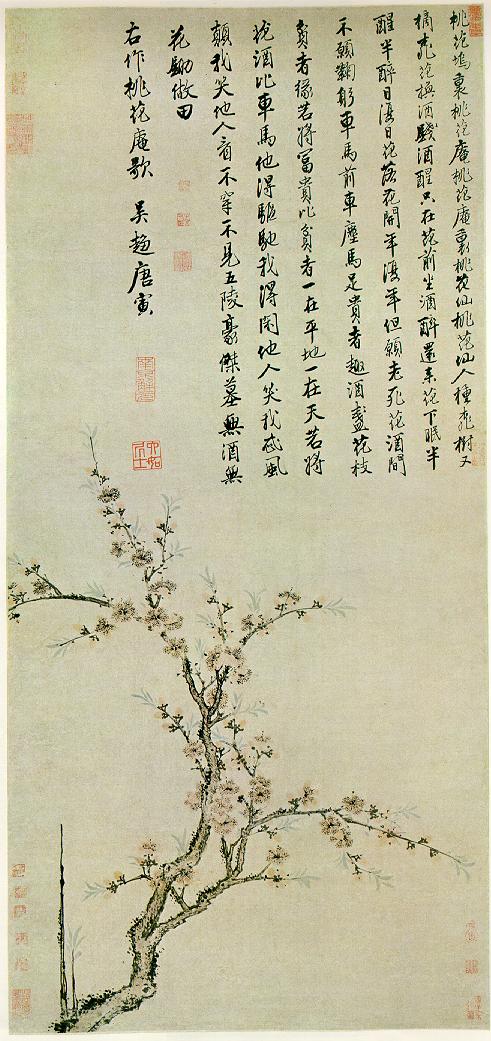 桃花塢裏桃花庵桃花庵裏桃花仙桃花仙人種桃樹又
摘桃花換酒錢酒醒只在花前坐酒醉還來花下眠半
醒半醉日復日花落花開年復年但願老死花酒間
不願鞠躬車馬前車塵馬足貴者趣酒盞花枝
貧者緣若將富貴比貧者一在平地一在天若將
花酒比車馬他得驅馳我得閑他人笑我忒風
顛我笑他人看不穿不見五陵豪傑墓無酒無
花鋤做田
右作桃花庵歌 吳趨唐寅
南京解元
六如居士